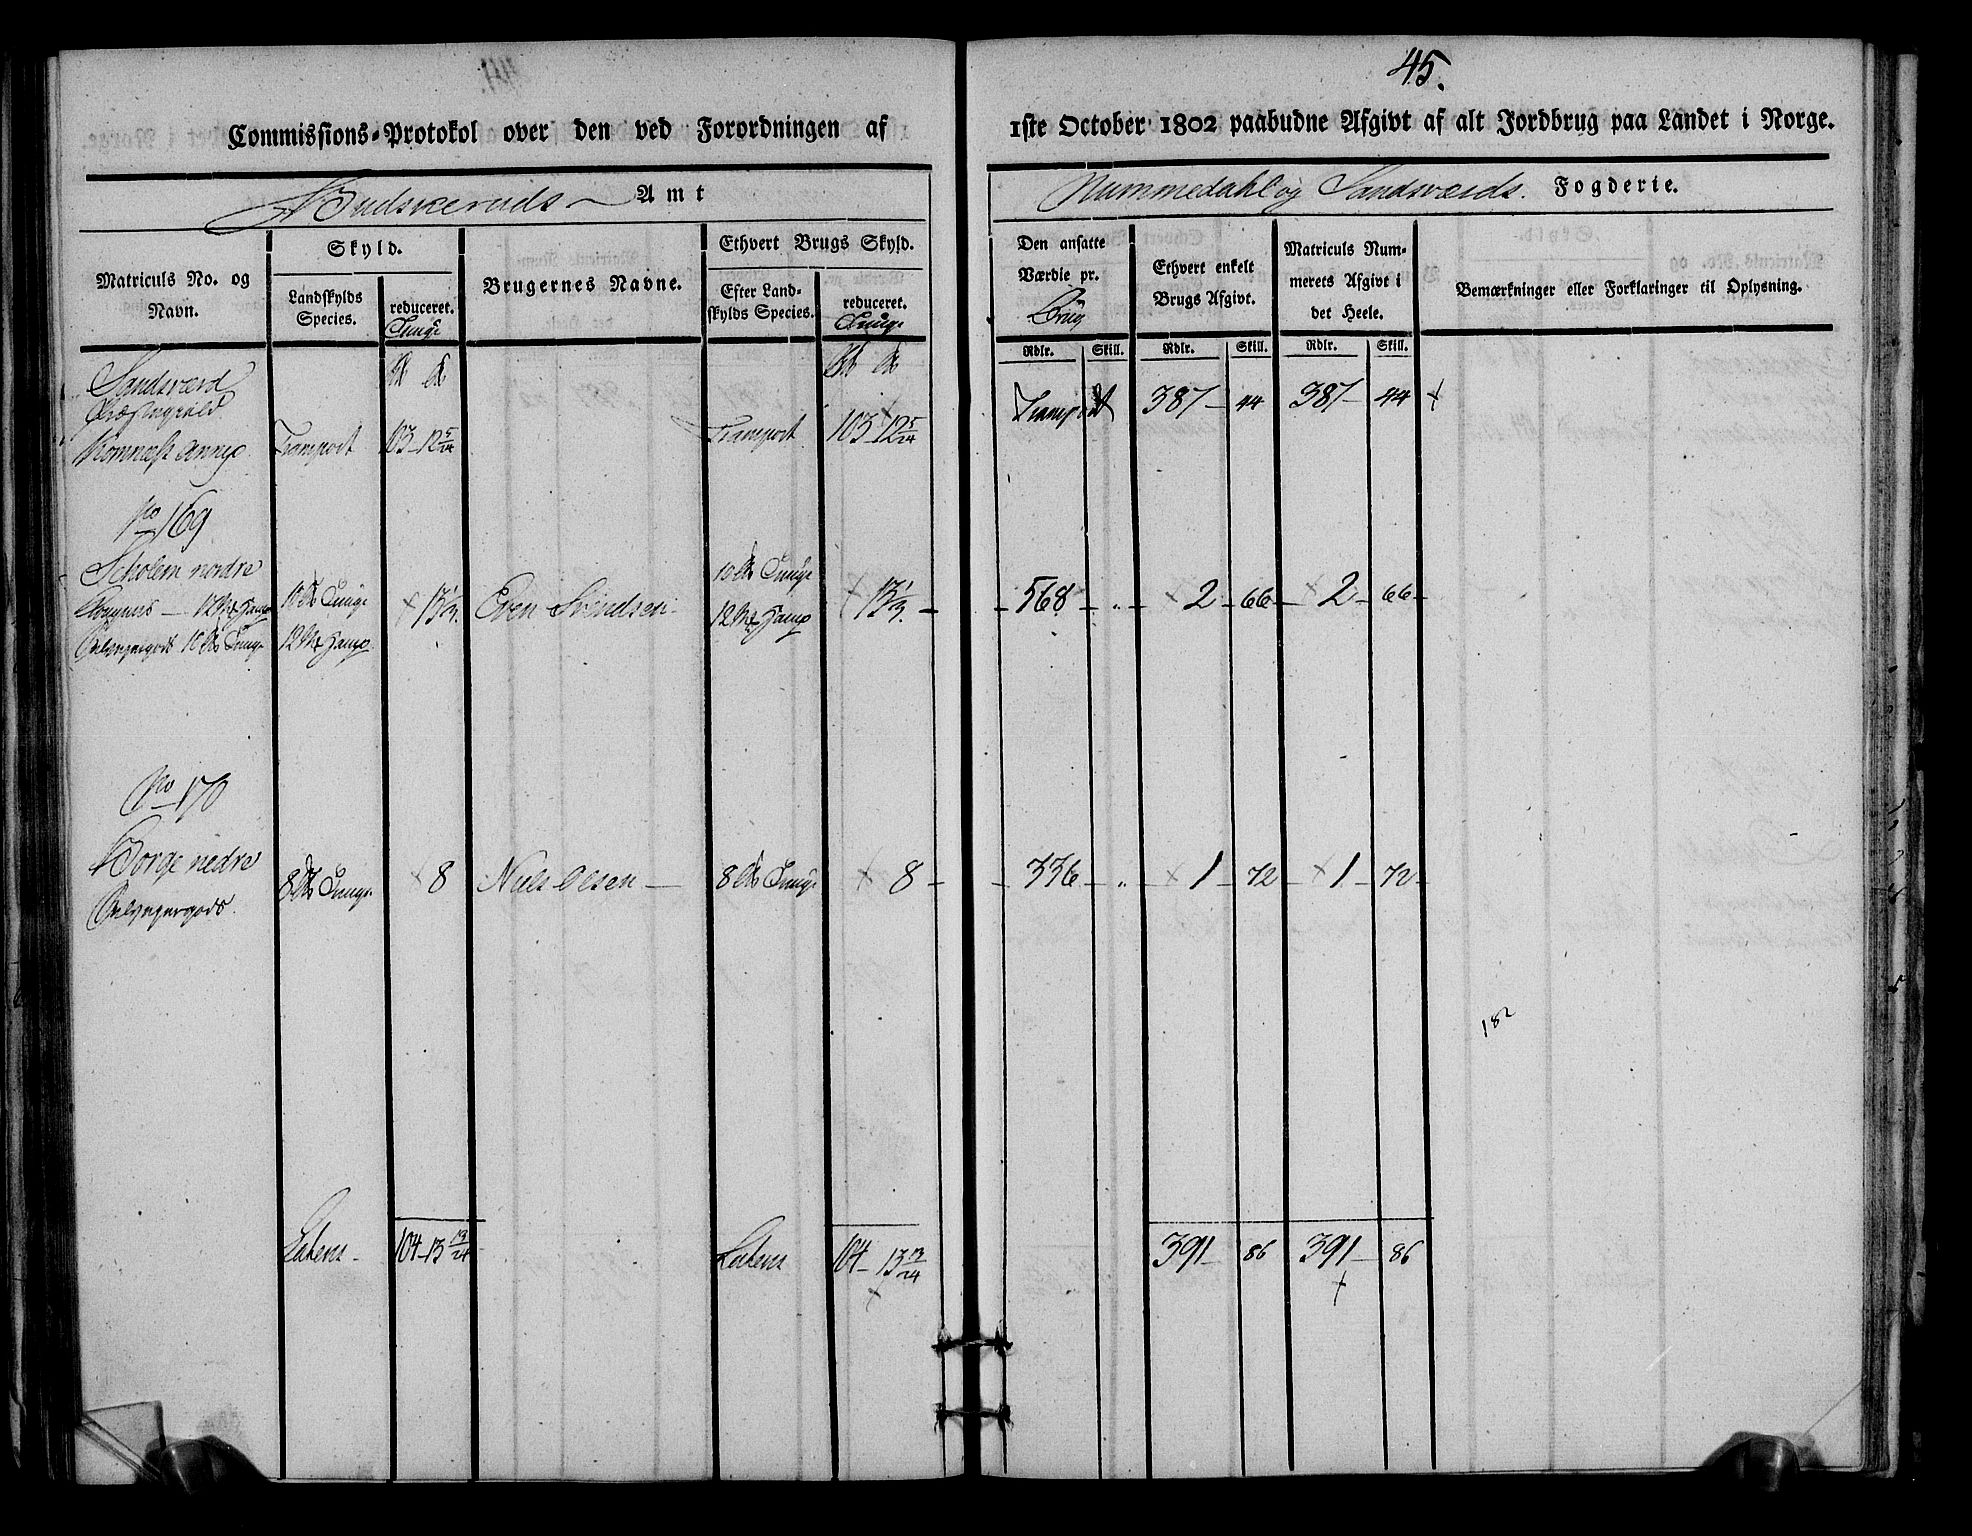 45.
Commissions-Protokol over den ved Forordningen af
1ste October 1802 paabudne Afgivt af alt Jordbrug paa Landet i Norge.
Budskeruds Amt
Nummedahl og Sandsværds. Fogderie.
Matriculs No. og Navn.
Skyld.
Landskylds Species.
reduceret. Tunge
Brugernes Navne.
Ethvert Brugs Skyld.
Efter Landskylds Species.
reduceret. Tunge
Den ansatte Værdie pr. Brug
Ethvert enkelt Brugs Afgivt.
Matriculs Nummerets Afgivt i det Heele.
Bemærkninger eller Forklaringer til Oplysning.
Rdlr. Skill. Rdlr. Skill. Rdlr. Skill.
Sandsværd
Præstegield
Komnæs Annex Transport 103 - 12 5/24 Transport 103 - 12 5/24 Transport 387 - 44 387 - 44
No 169
Scholem nordre
12 Mk Hamp 10 Tunge
12 Mk Hamp 13 1/3. Even Svendsen 10 Tunge
12 Mk Hamp 13 1/3 - 568 - " - 2 - 66 - 2 - 66 -
Selveyergods 10 Tunge
No 170
Borge nedre
Selveyergods. 8 Tunge 8 Niels Olsen - 8 Tunge 8 - - 336 - " - 1 - 72 - 1 - 72 -
182
Latens - 104 - 13 13/24 Latens 104 - 13 13/24 391 - 86 391 - 86